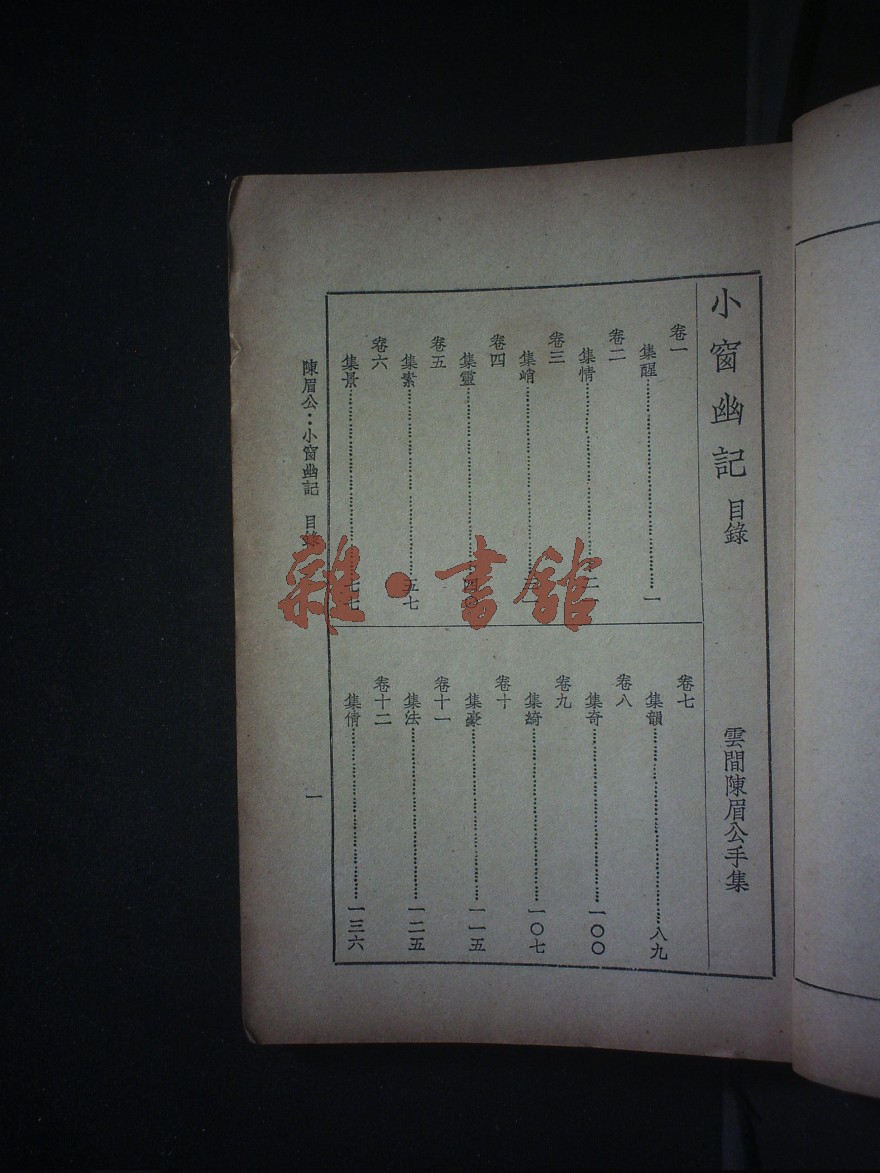 小窗幽記 目錄
雲間陳眉公手集
卷一
集醒……一
卷二
集情……二一
卷三
集峭……三一
卷四
集靈……四〇
卷五
集素……五七
卷六
集景……七七
卷七
集韻……八九
卷八
集奇……一〇〇
卷九
集綺……一〇七
卷十
集豪……一一五
卷十一
集法……一二五
卷十二
集倩……一三六
陳眉公：小窗幽記 目錄
一
雜·書館